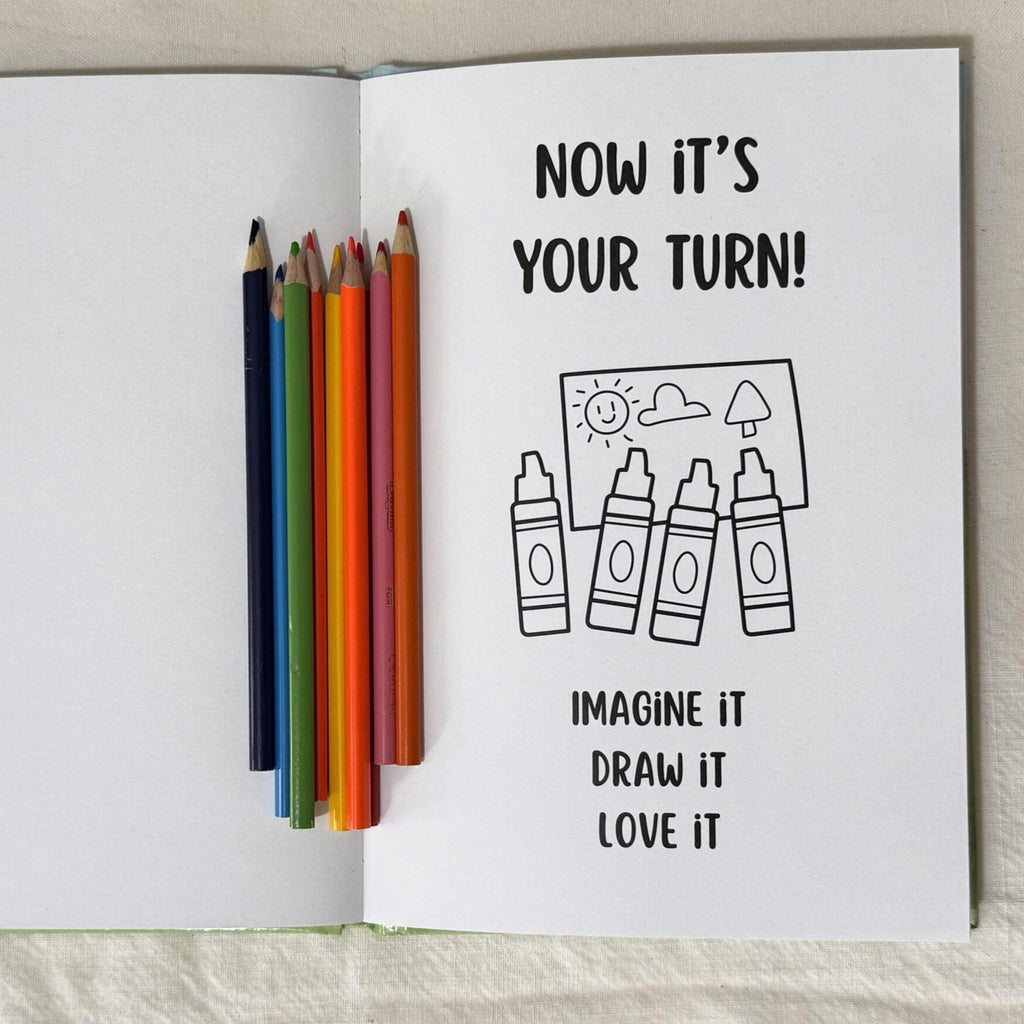 NOW iT'S
YOUR TURN!
IMAGiNE iT
DRAW iT
LOVE iT